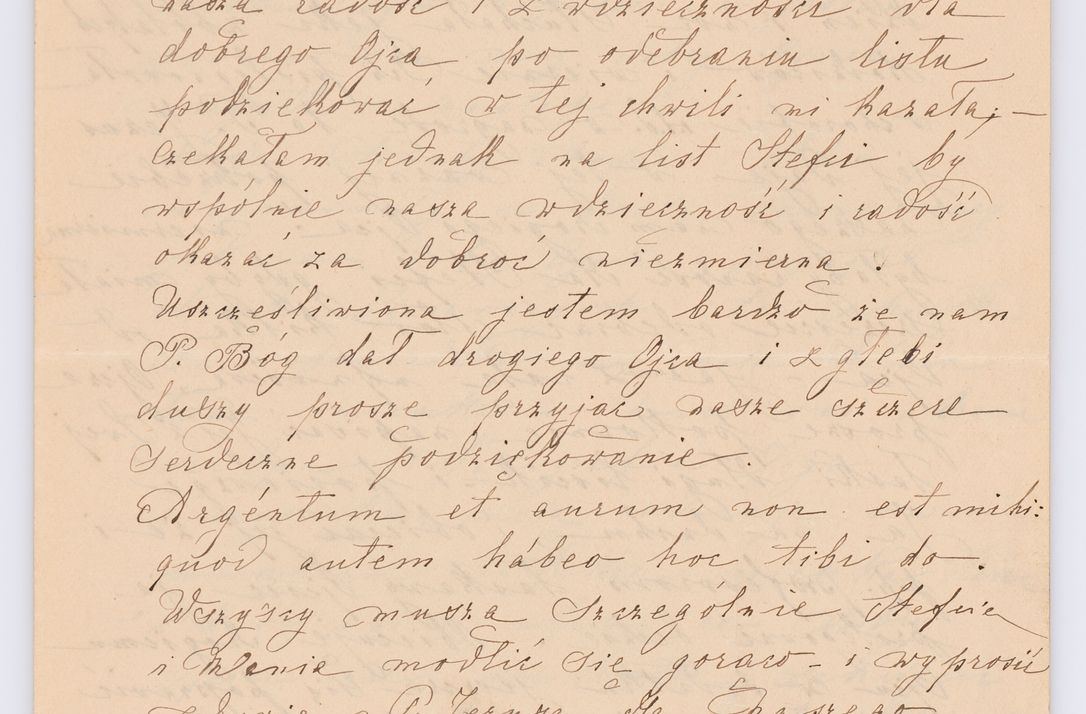 nasza radość i z wdzieczności dla
dobrego Ojca po odebraniu listu
podziekować w tej chwili mi kazała; —
czekałam jednak na list Stefci by
wspólnie nasza wdzieczność i radość
okazać za dobroć niezmierna.
Uszcześliwiona jestem bardzo że nam
P. Bóg dał drogiego Ojca i z głębi
duszy prosze przyjąc nasze szczere
serdeczne podziękowanie.
Argéntum et aurum non est mihi:
quod autem hábeo hoc tibi do.
Wszyscy musza szczególnie Stefcia
i Mania modlić się goraco - i wyprosić
P. Jezusa dla Naszego